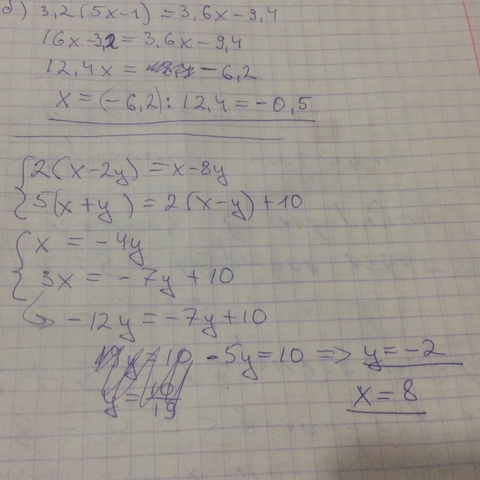 б) 3,2(5x-1) = 3,6x-9,4
16x-3,2 = 3,6x-9,4
12,4x = -6,2
x = (-6,2) : 12,4 = -0,5
2(x-2y) = x-8y
5(x+y) = 2(x-y)+10
x = -4y
3x = -7y+10
-12y = -7y+10
-5y = 10 => y = -2
x = 8